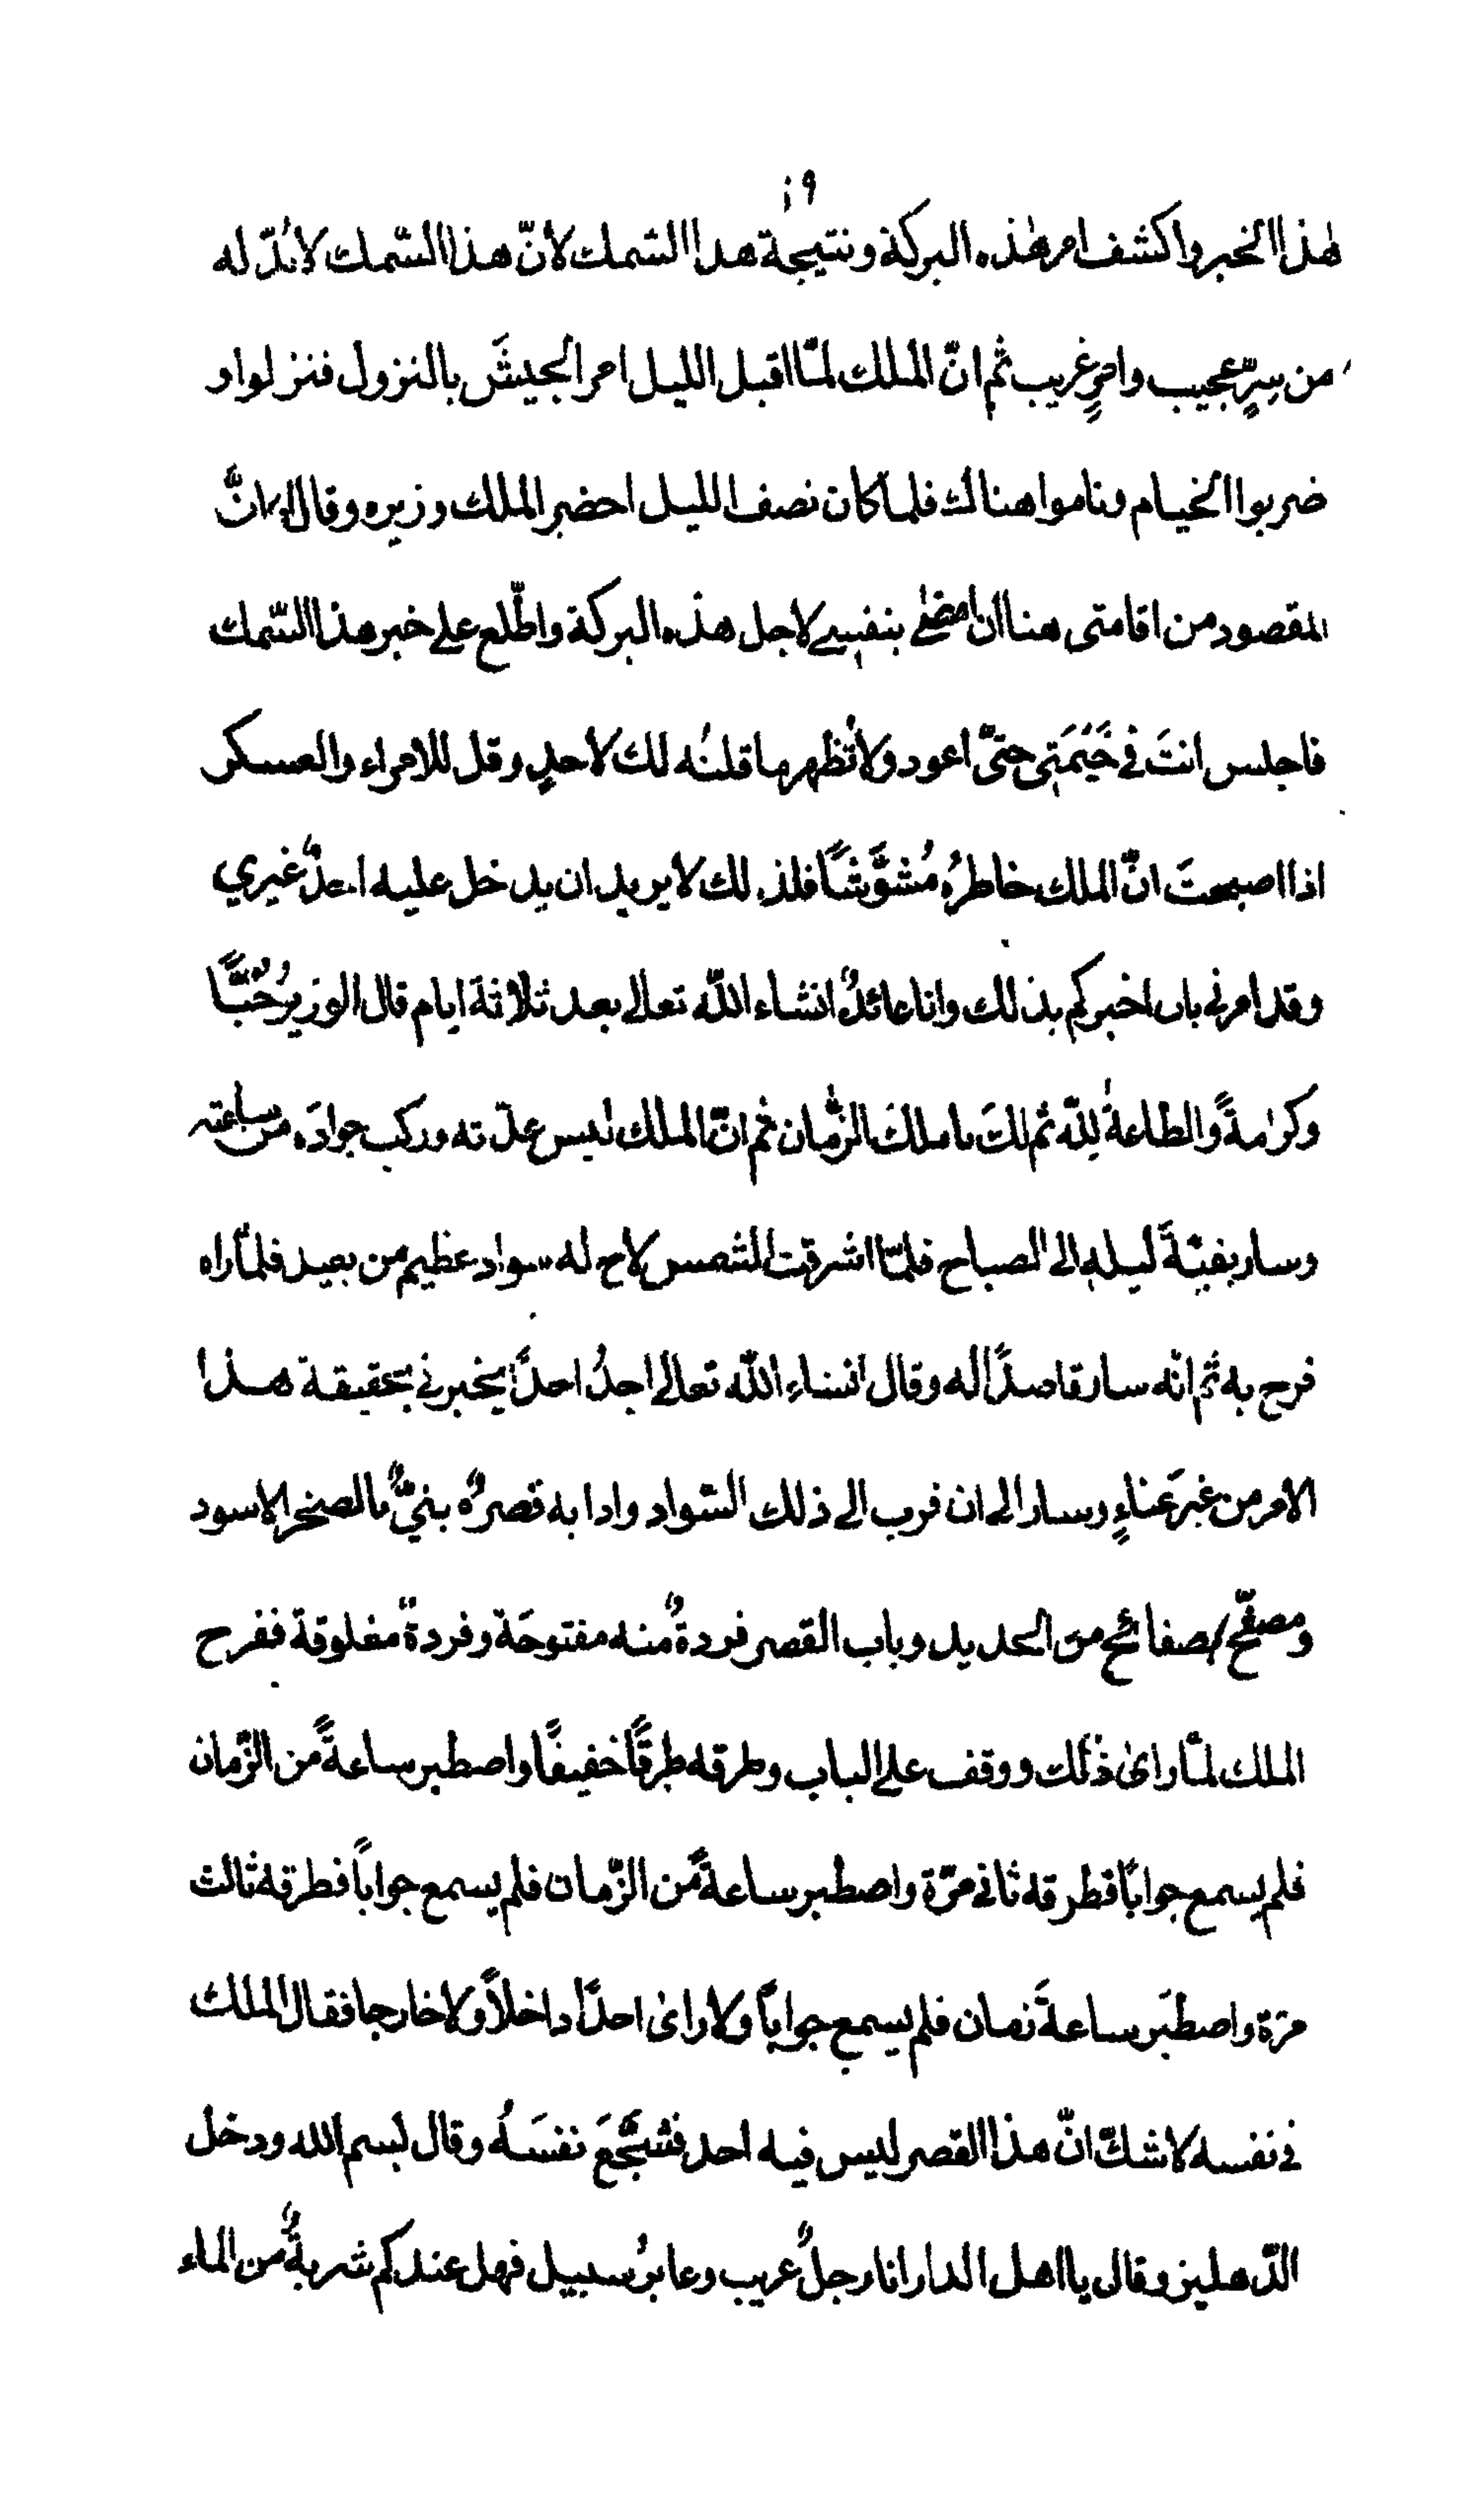 هٰذا الخبر واكشف امر هٰذه البركة ونتيجة هذا السّمك لأنّ هذا السّمك لابُدّ له
من سِرٍّ عجيب وامرٍ غريب ثم انّ الملك لمّا اقبل الليل امر الجيشَ بالنزول فنزلوا و
ضربوا الخيام وناموا هناك فلمّا كان نصف الليل احضر الملك وزيره وقال له انَّ
المقصود من اقامتى هنا ان بنفسي لاجل هذه البركة واطّلع على خبر هذا السّمك
فاجلس انتَ في خَيْمَتِي حتّى اعود ولا تُظهر ما قلتُه لك لأحدٍ وقل للامراء والعسكر
اذا اصبحتَ انّ الملك خاطرُه مُشوَّشًا فلذٰلك لا يريد ان يدخل عليه احدٌ غيري
وقد امرني بان اخبركم بذلك وانا عائدٌ انشاء اللّه تعالى بعد ثلاثة ايام قال الوزيرُ حُبًّا
وكرٰمةً والطاعةُ للّه ثم لك يا ملكَ الزّمان ثم انّ الملك لبس عدّته وركب جوادَه من ساعته
وسار بقيّةَ ليلهِ الى الصباح فلمّا اشرقت الشمس لاح له سواد عظيم من بعيد فلمّا راه
فرح به ثم انّه سار قاصدًا اله وقال انشاء اللّه تعالى اجدُ احدًا يخبرني بحقيقة هذا
الامر من غيرِ عَناءٍ وسار الى ان قرب الى ذلك السّواد واذا به قصرٌ بنيٌّ بالصخر الاسود
ومصفّح بصفائح من الحديد وباب القصر فردةٌ منه مفتوحَة وفردةٌ مغلوقة ففرح
الملك لمّا راىٰ ذٰلك ووقف على الباب وطرقه طرقًا خفيفًا واصطبر ساعةً من الزّمان
فلم يسمع جوابًا فطرقه ثانى مرّة واصطبر ساعةً من الزّمان فلم يسمع جوابًا فطرقه ثالث
مرّة واصطبَر ساعةَ زمان فلم يسمع جوابًا ولا راىٰ احدًا داخلاً ولا خارجا فقال الملك
في نفسه لا شكّ انّ هذا القصر ليس فيه احد فشجَّعَ نفسَهُ وقال لبسم الله ودخل
الدّهليز وقال يا اهل الدار انا رجلٌ غريب وعابرُ سبيل فهل عندكم شربةٌ من الماء